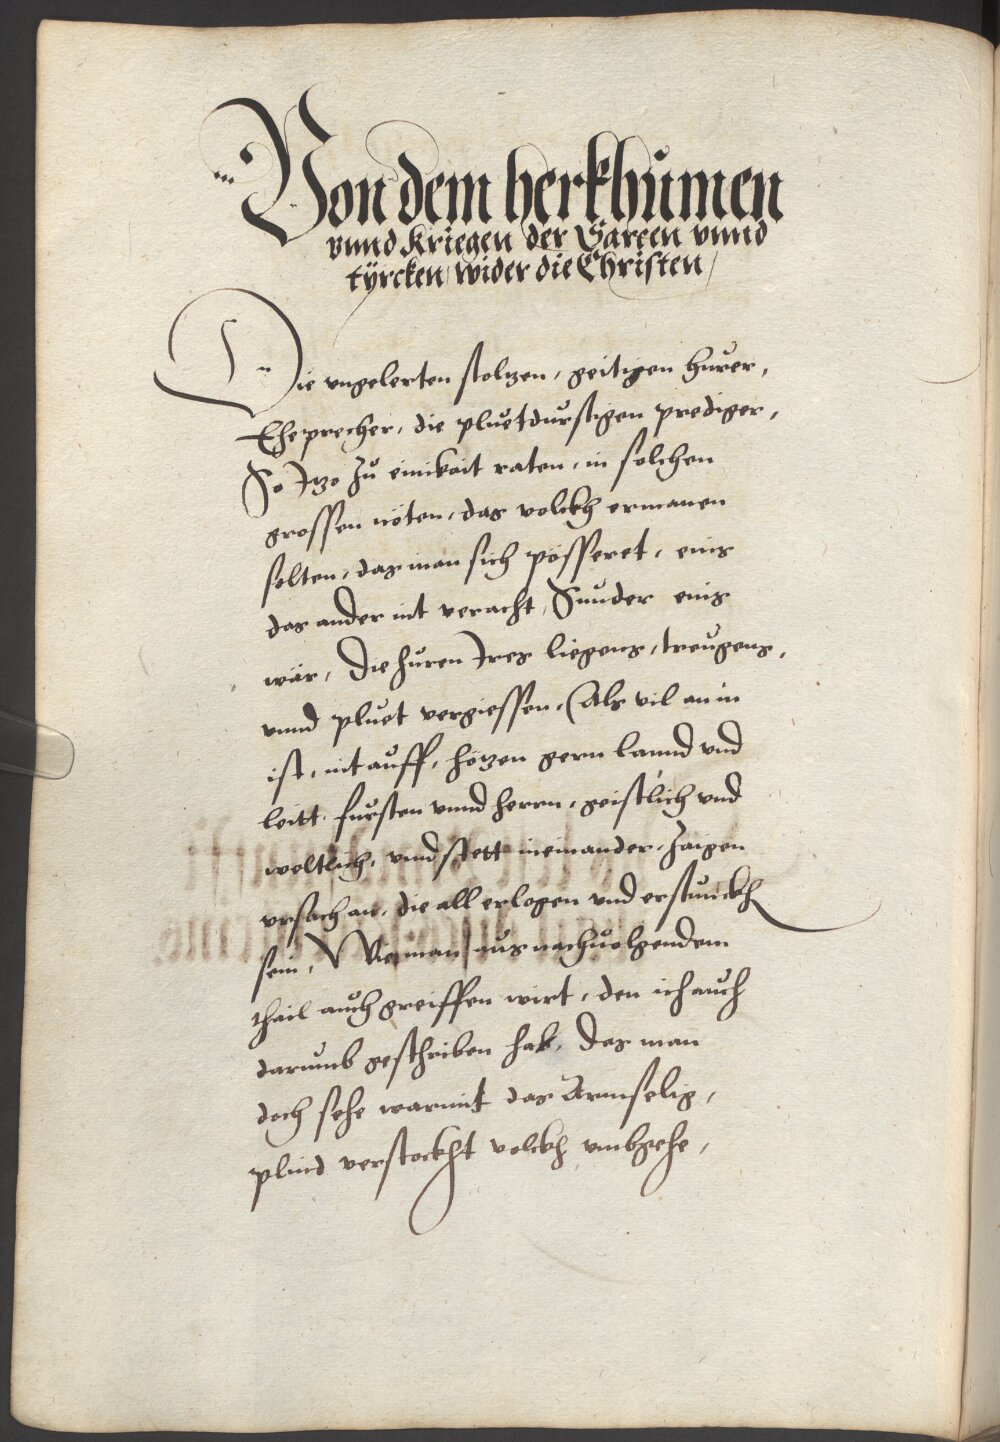 Von dem herkhumen
vnnd Kriegen der Sarcen vnnd
tÿrcken wider die Christen /
Die vngelerten stoltzen, geitigen hurer,
Eheprecher, die pluetdurstigen prediger,
So Jtzo zu einikait raten, in solchen
grossen nöten, das volckh ermanen
solten, das man sich pösseret, eins
das ander nit veracht, Sunder eins
wär, Die hüren Jres liegens, treugens,
vnnd pluet vergiessen, (Als vil an in
ist, nit auff, hetzen gern lannd vnd
leitt, fursten vnnd herrn, geistlich vnd
weltlich, vnd stett ineinander, Zaigen
vrsach an, die all erlogen vnd erstunckh
sein, Wie man aus nachuolgendem
thail auch greiffen wirt, den ich auch
darumb geschriben hab, Das man
doch sehe warmit das Armselig,
plind verstockht volckh vmbgehe,